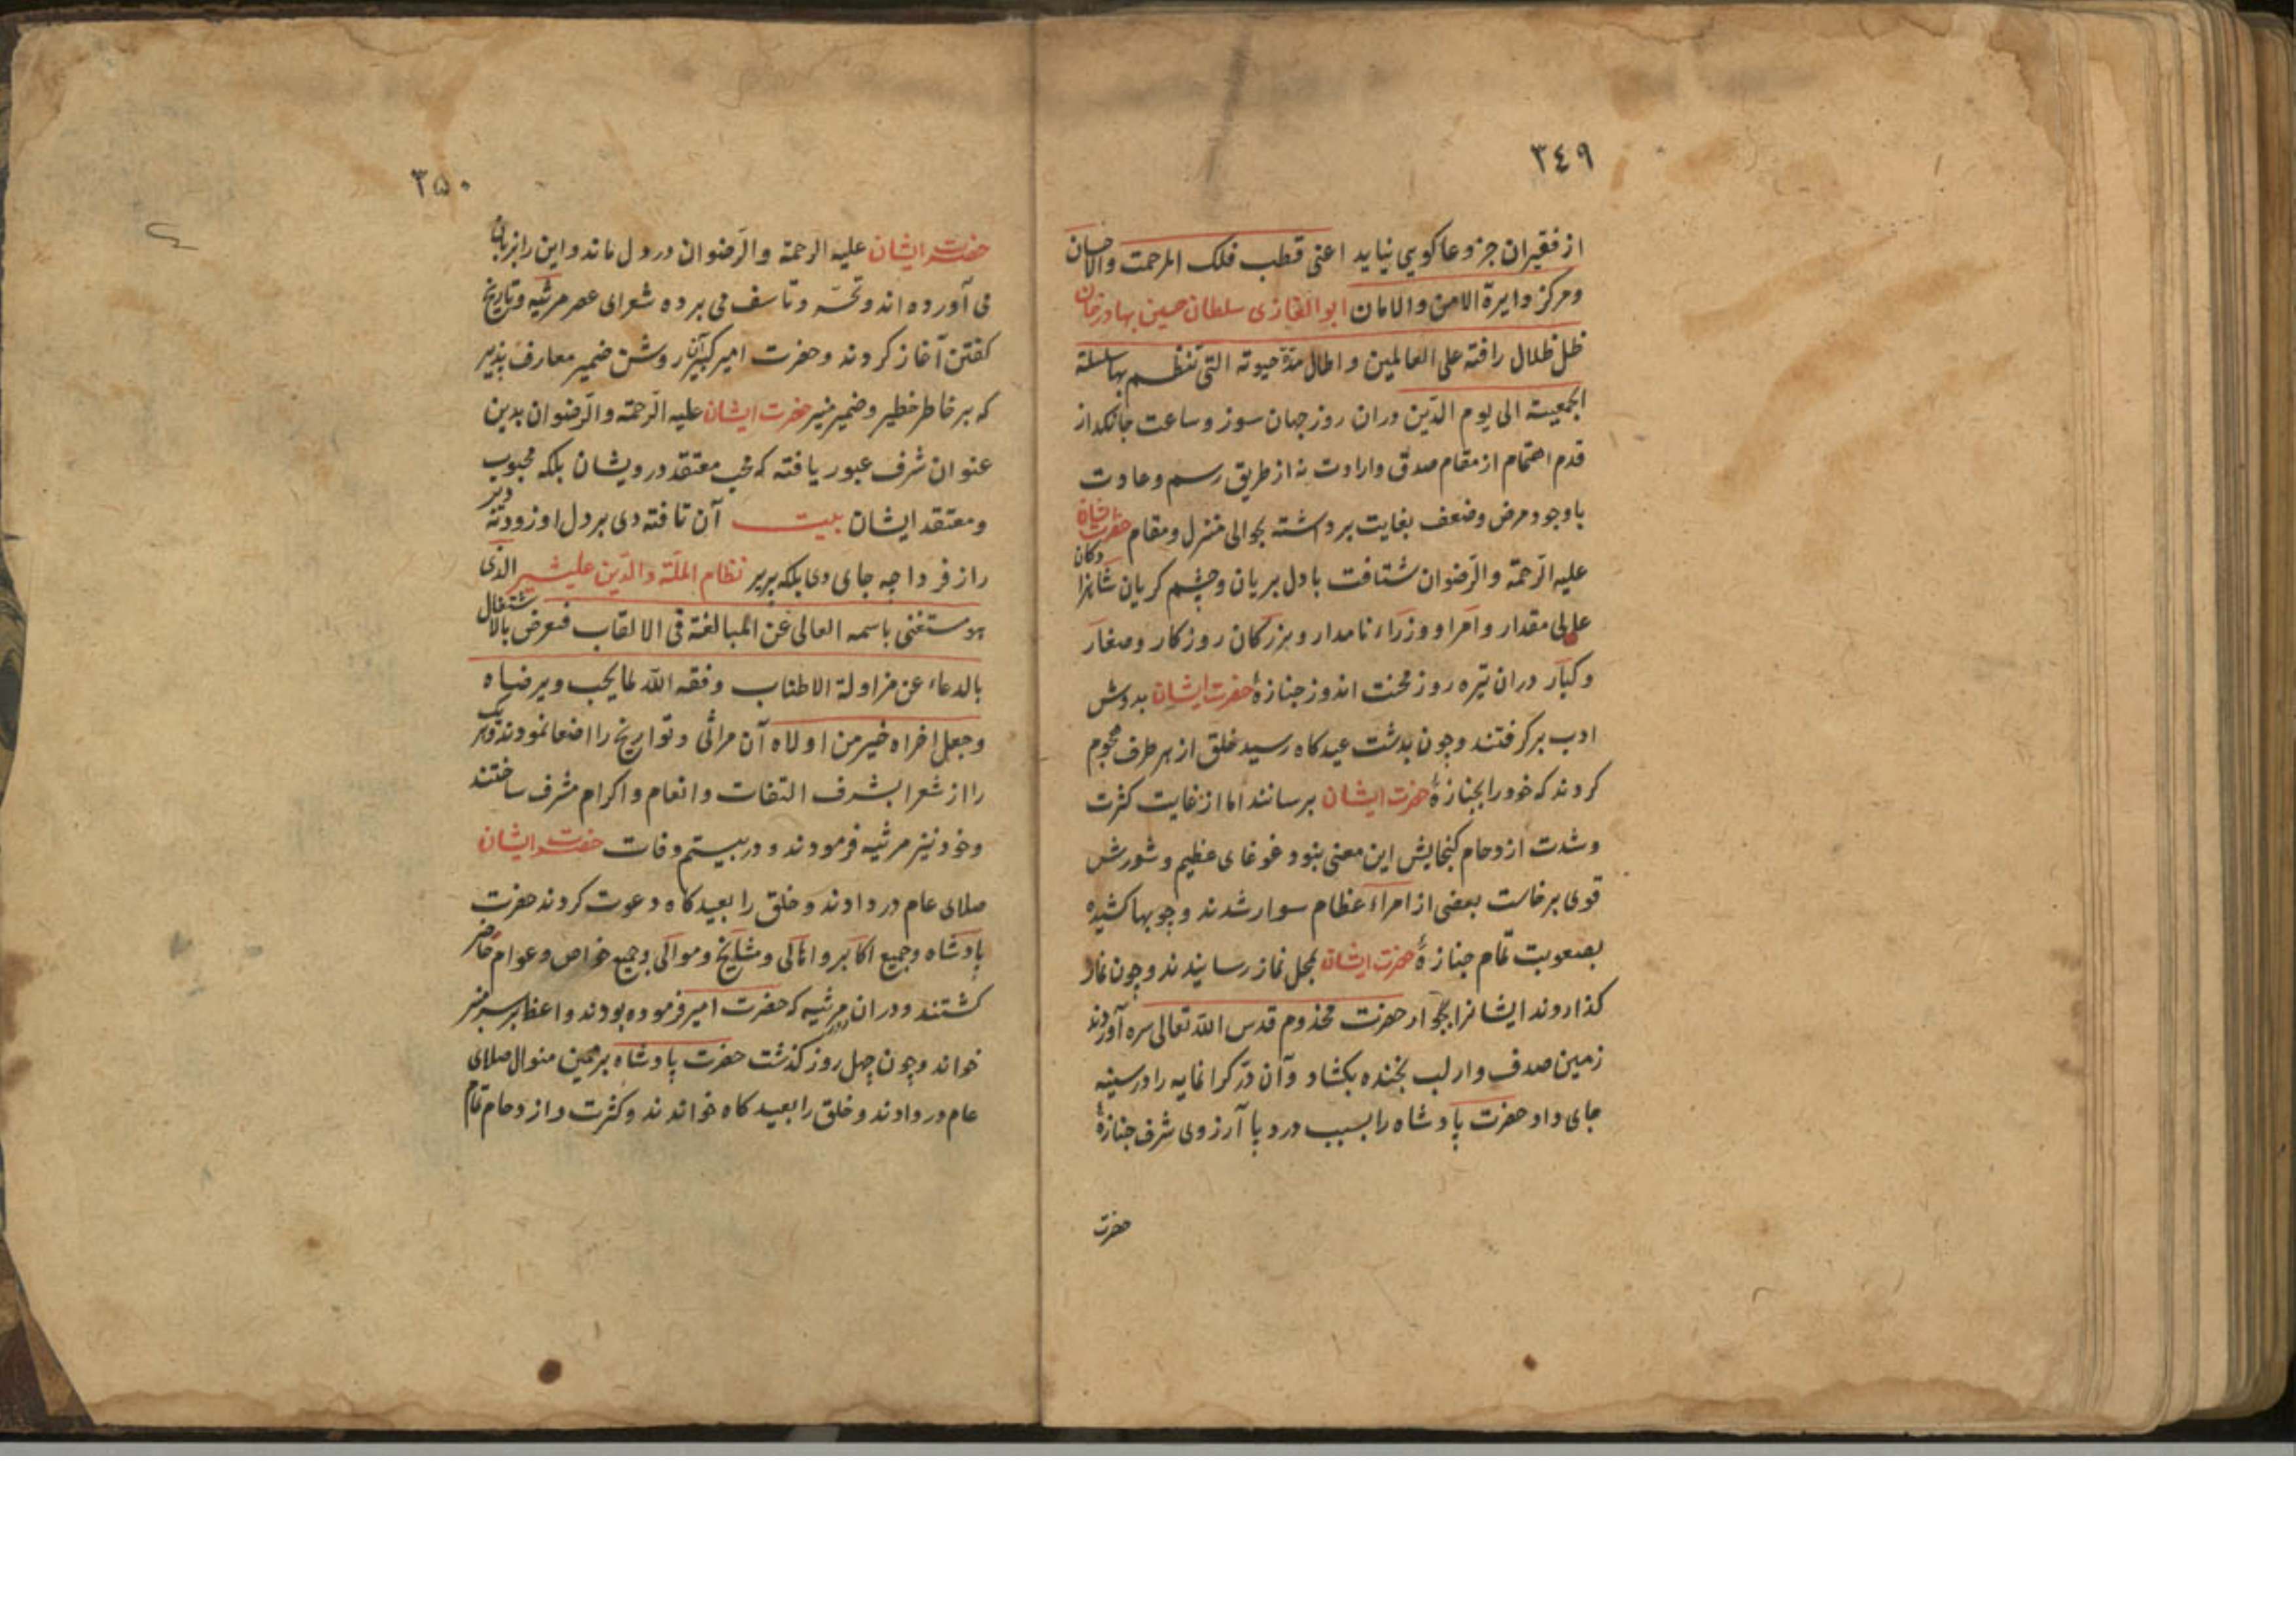 ٣٤٩
از فقیران جز دعاکویی نیاید اعنی قطب فلک المرحمت والاحسان
ومرکز دایرة الامن والامان ابوالغازی سلطان حسین بهادرخان
ظل ظلال رافته علی العالمین واطال مدّة حیوته التی تنظم بها سلسلة
الجمعیة الی یوم الدّین دران روز جهان سوز وساعت جانکداز
قدم اهتمام از مقام صدق وارادت نه از طریق رسم وعادت
باوجود مرض وضعف بغایت برداشته بحوالی منزل ومقام حضرت ایشان
علیه الرّحمة والرّضوان شتافت بادل بریان وچشم کریان شاهزادکان
عالی مقدار وامرا ووزراء نامدار وبزرکان روزکار وصغار
وکبار دران تیره روز محنت اندوز جنازهٔ حضرت ایشان بدوش
ادب برکرفتند وچون بدشت عیدکاه رسید خلق از هر طرف هجوم
کردند که خود را بجنازهٔ حضرت ایشان برسانند اما از غایت کثرت
وشدت ازدحام کنجایش این معنی نبود غوغای عظیم وشورش
قوی برخاست بعضی از امراء عظام سوار شدند وچوبها کشیده
بصعوبت تمام جنازهٔ حضرت ایشان بمحل نماز رسانیدند وچون نماز
کذاردند ایشانرا بجوار حضرت مخدوم قدس الله تعالی سره آوردند
زمین صدف وار لب بخنده بکشاد وآن درّ کرانمایه را درسینه
جای داد حضرت پادشاه را بسبب درد پا آرزوی شرف جنازهٔ
حضرت
٣۵٠
حضرت ایشان علیه الرحمة والرّضوان در دل ماند واین را بر زبان
می آورده اند وتحسّر وتاسف می برده شعرای عصر مرثیه وتاریخ
کفتن آغاز کردند وحضرت امیرکبیر آثار روشن ضمیر معارف پذیر
که بر خاطر خطیر وضمیر منیر حضرت ایشان علیه الرّحمة والرّضوان بدین
عنوان شرف عبور یافته که محب معتقد درویشان بلکه محبوب
ومعتقد ایشان بیت آن تافته دی بر دل او زود نه دیر
راز فردا چه جای دی بلکه پریر نظام الملّة والدّین علیشیر الذی
هو مستغنی باسمه العالی عن المبالغة فی الالقاب فنعرض بالاشتغال
بالدعاء عن مزاولة الاطناب وفقه الله لما یحب ویرضاه
وجعل اخراه خیر من اولاه آن مراثی وتواریخ را اصغا نمودند وهر یک
را از شعرا بشرف التفات وانعام واکرام مشرف ساختند
وخود نیز مرثیه فرمودند ودر بیستم وفات حضرت ایشان
صلای عام در دادند وخلق را بعیدکاه دعوت کردند حضرت
پادشاه وجمیع اکابر واهالی ومشایخ وموالی وجمیع خواص وعوام حاضر
کشتند ودران مرثیه که حضرت امیر فرموده بودند واعظ بر سر منبر
خواند وچون چهل روز کذشت حضرت پادشاه بر همین منوال صلای
عام در دادند وخلق را بعیدکاه خواندند وکثرت وازدحام تمام